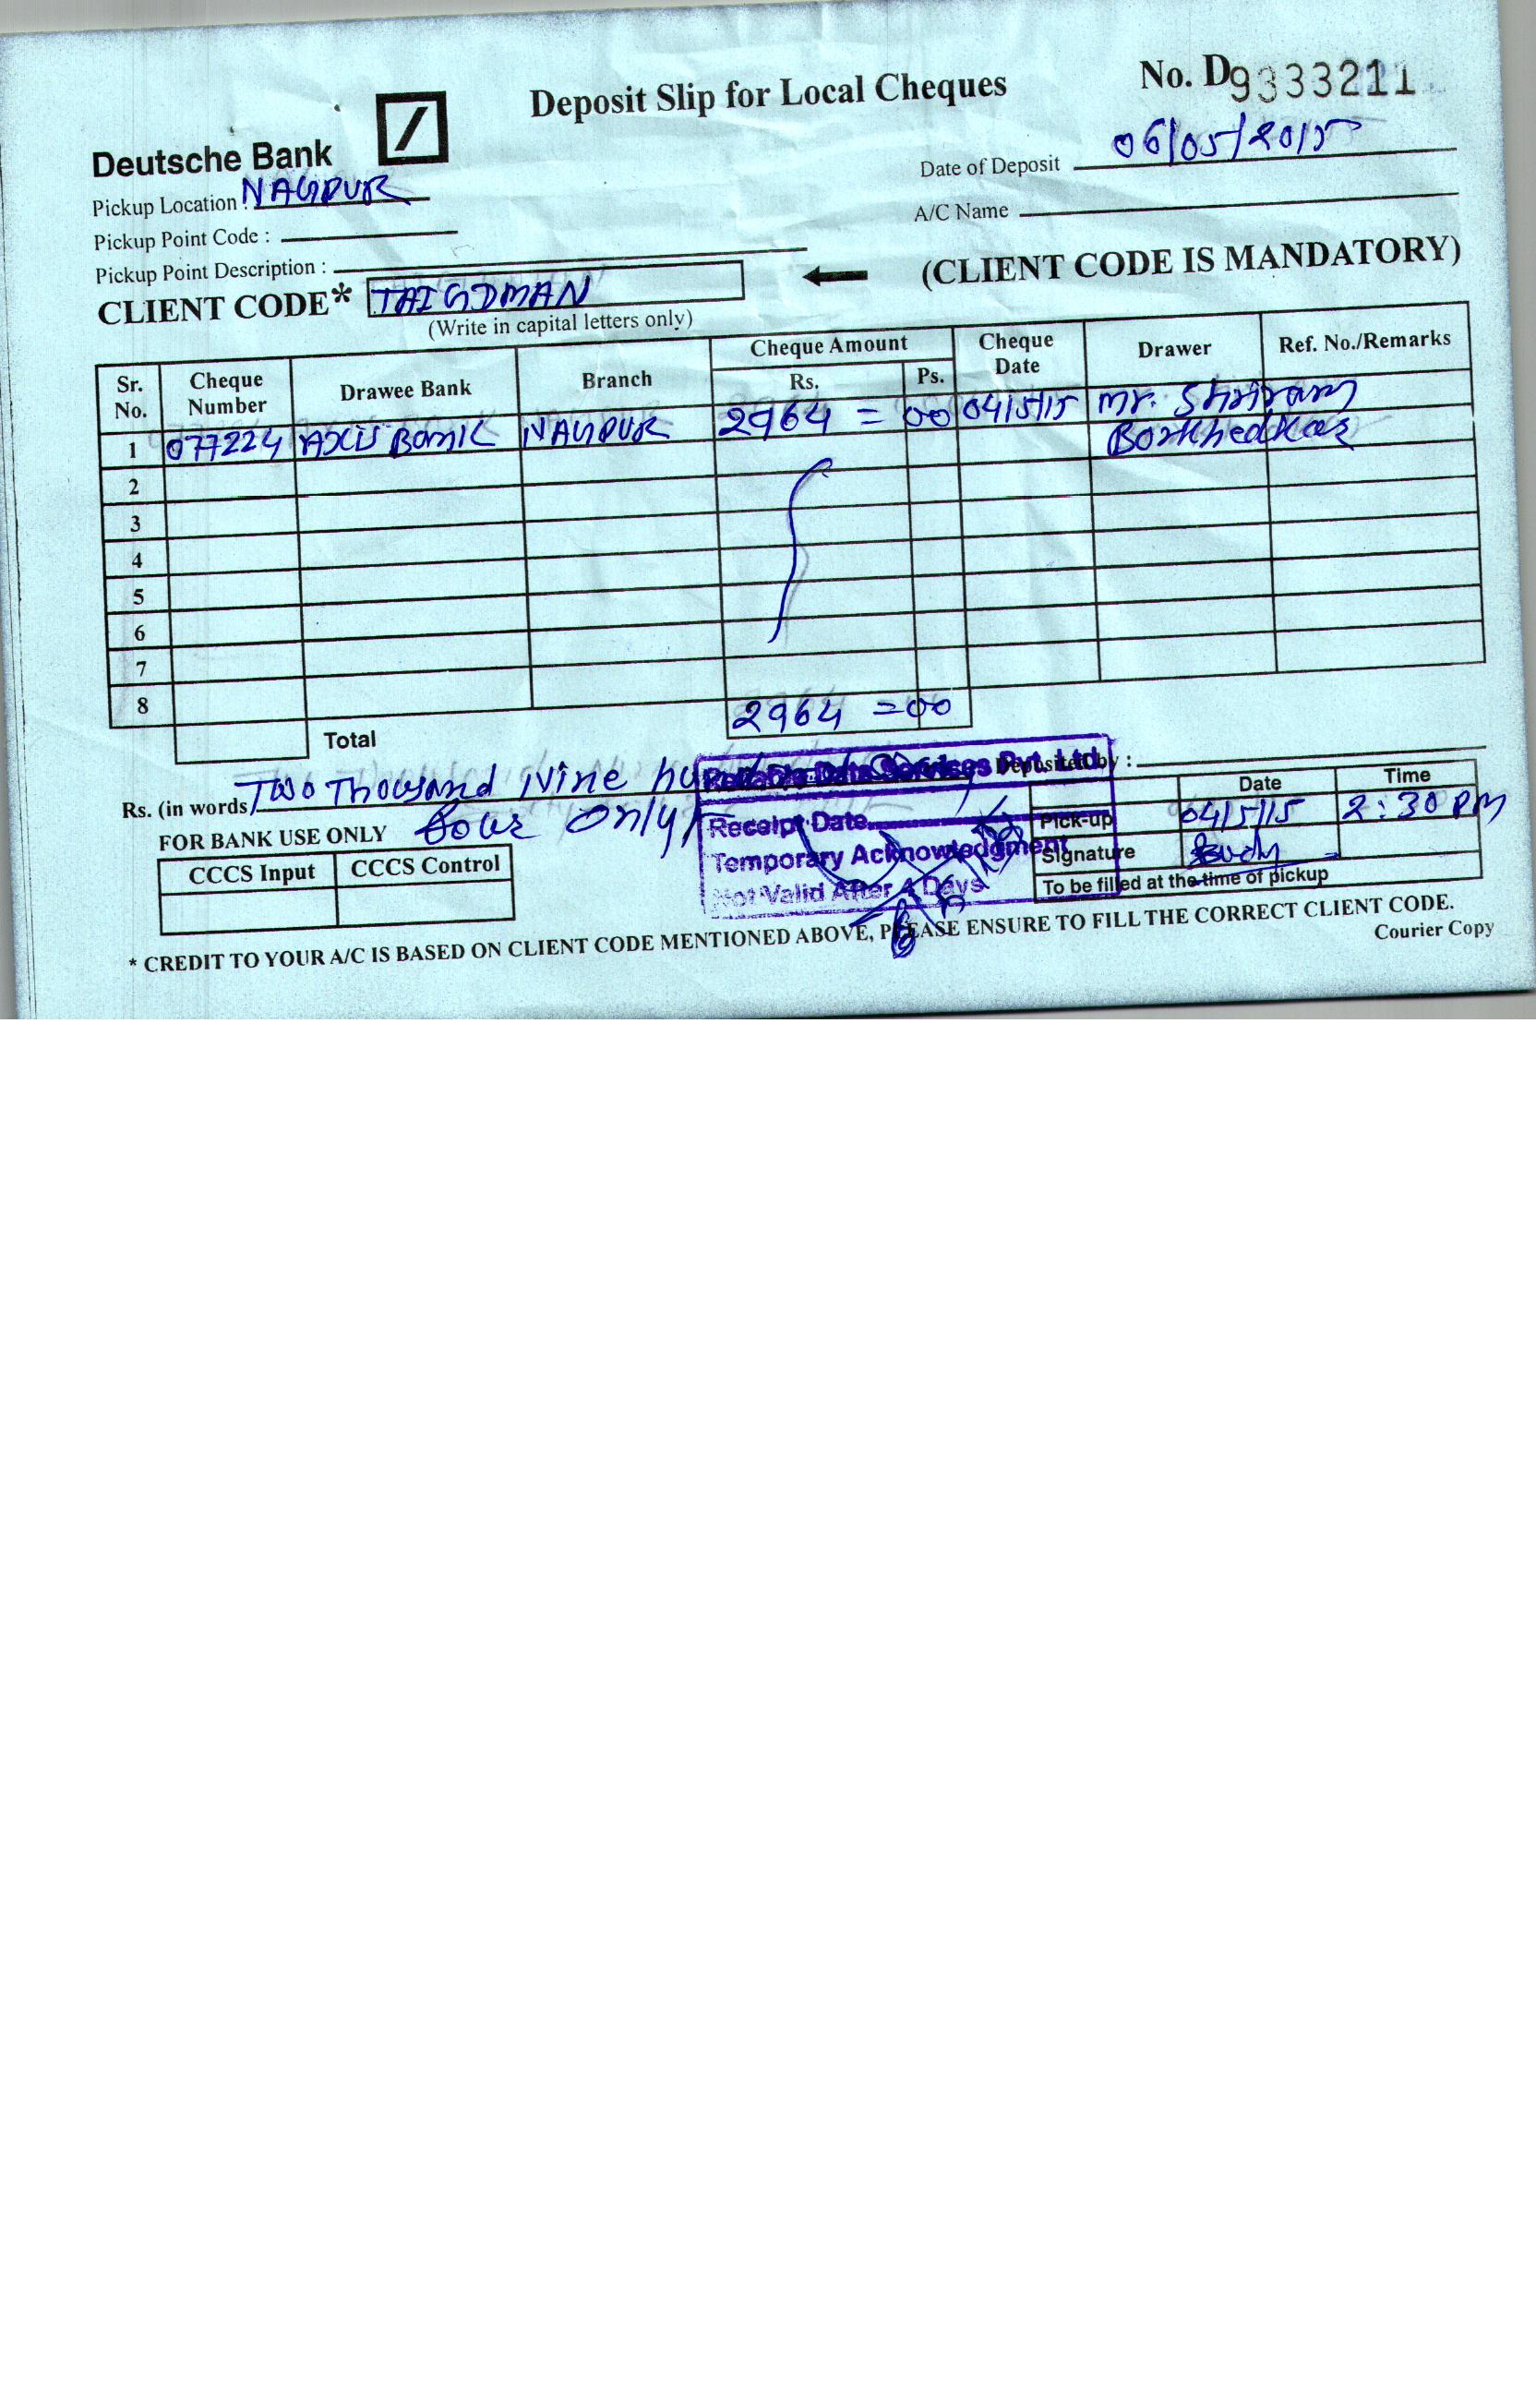 Deposit Slip for Local Cheques
No. D9333211
Deutsche Bank
Date of Deposit 06/05/2015
Pickup Location : NAGPUR
A/C Name
Pickup Point Code :
Pickup Point Description :
CLIENT CODE* TAIGDMAN
(CLIENT CODE IS MANDATORY)
(Write in capital letters only)
Sr. No. Cheque Number Drawee Bank Branch Cheque Amount Rs. Ps. Cheque Date Drawer Ref. No./Remarks
1 077224 AXIS Bank NAGPUR 2964 = 00 04/5/15 Mr. Shriram Borkhedkar
2
3
4
5
6
7
8
Total 2964 = 00
Rs. (in words) Two Thousand Nine
Four Only/-
Deposited by :
Data Services Pvt. Ltd.
Receipt Date
Temporary Acknowledgment
Not Valid After 4 Days
Date Time
Pick-up 04/5/15 2:30 PM
Signature
To be filled at the time of pickup
FOR BANK USE ONLY
CCCS Input CCCS Control
* CREDIT TO YOUR A/C IS BASED ON CLIENT CODE MENTIONED ABOVE, PLEASE ENSURE TO FILL THE CORRECT CLIENT CODE.
Courier Copy